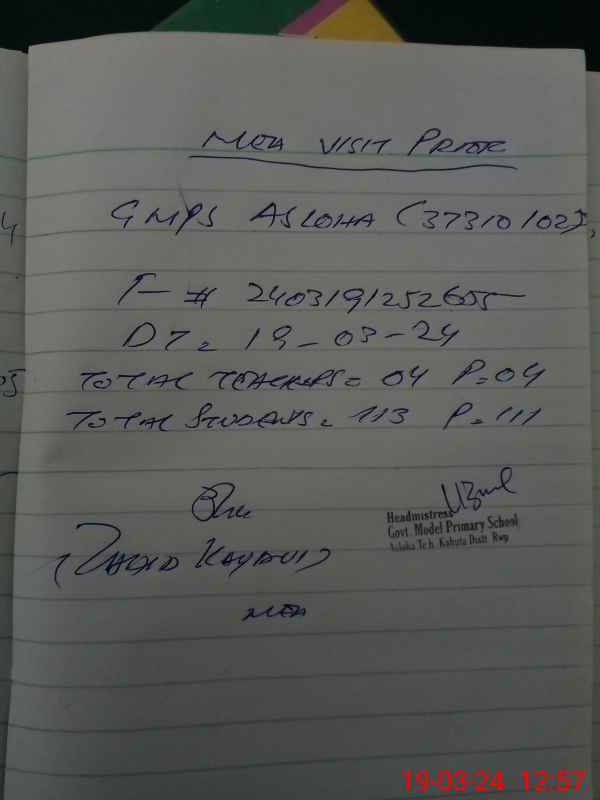 MEA VISIT PROOF
GMPS ASLOHA (37310102),
T-# 2403191252655
DT = 19-03-24
TOTAL TEACHERS = 04 P=04
TOTAL STUDENTS = 113 P=111
Headmistress
Govt. Model Primary School
Asloha Teh. Kahuta Distt Rwp
MEA
19-03-24 12:57